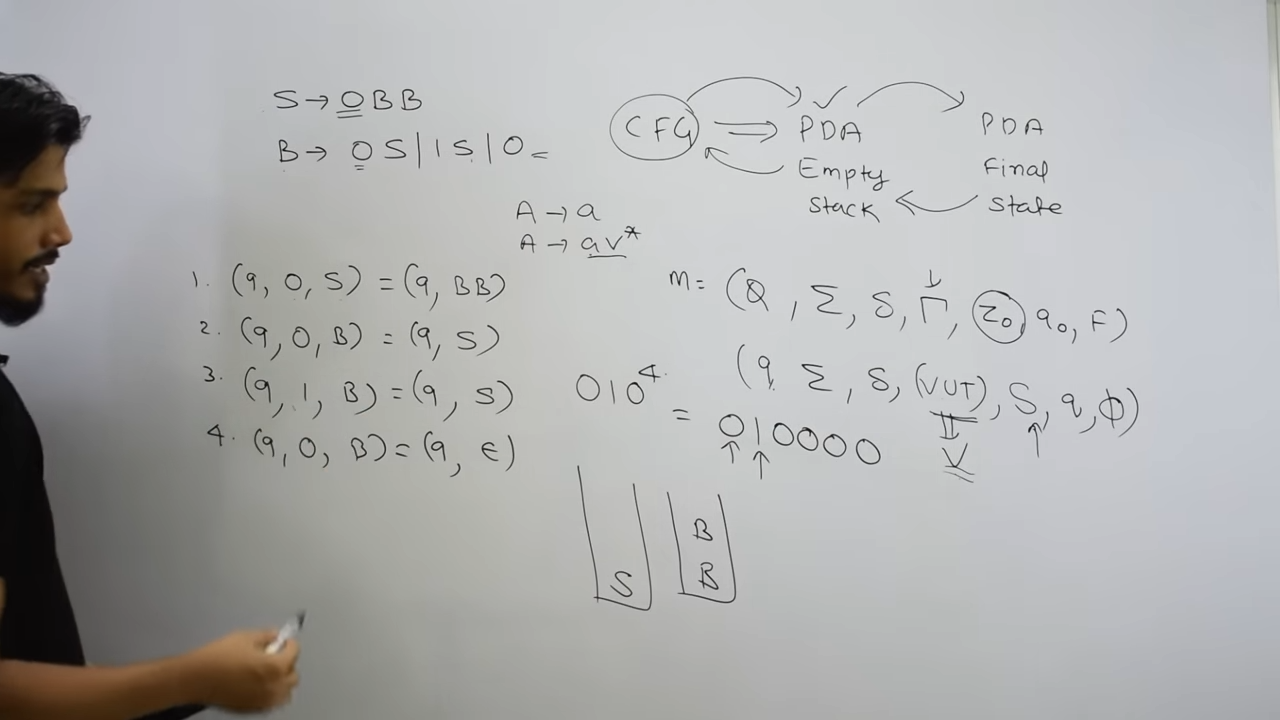 S → 0BB
B → 0S|1S|0
CFG ⇒ PDA ✓
Empty
Stack
PDA
Final
State
A → a
A → av*
1. (q, 0, S) = (q, BB)
2. (q, 0, B) = (q, S)
3. (q, 1, B) = (q, S)
4. (q, 0, B) = (q, ε)
M = (Q, Σ, δ, Γ, Z0 q0, F)
(q Σ, δ, (VUT), S, q, ϕ)
V
010^4 = 010000
S
B
B